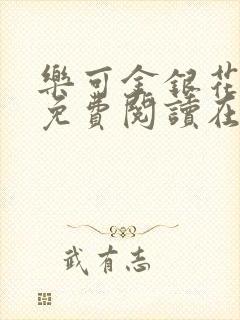 樂可金銀花
免費閱讀在
武有志